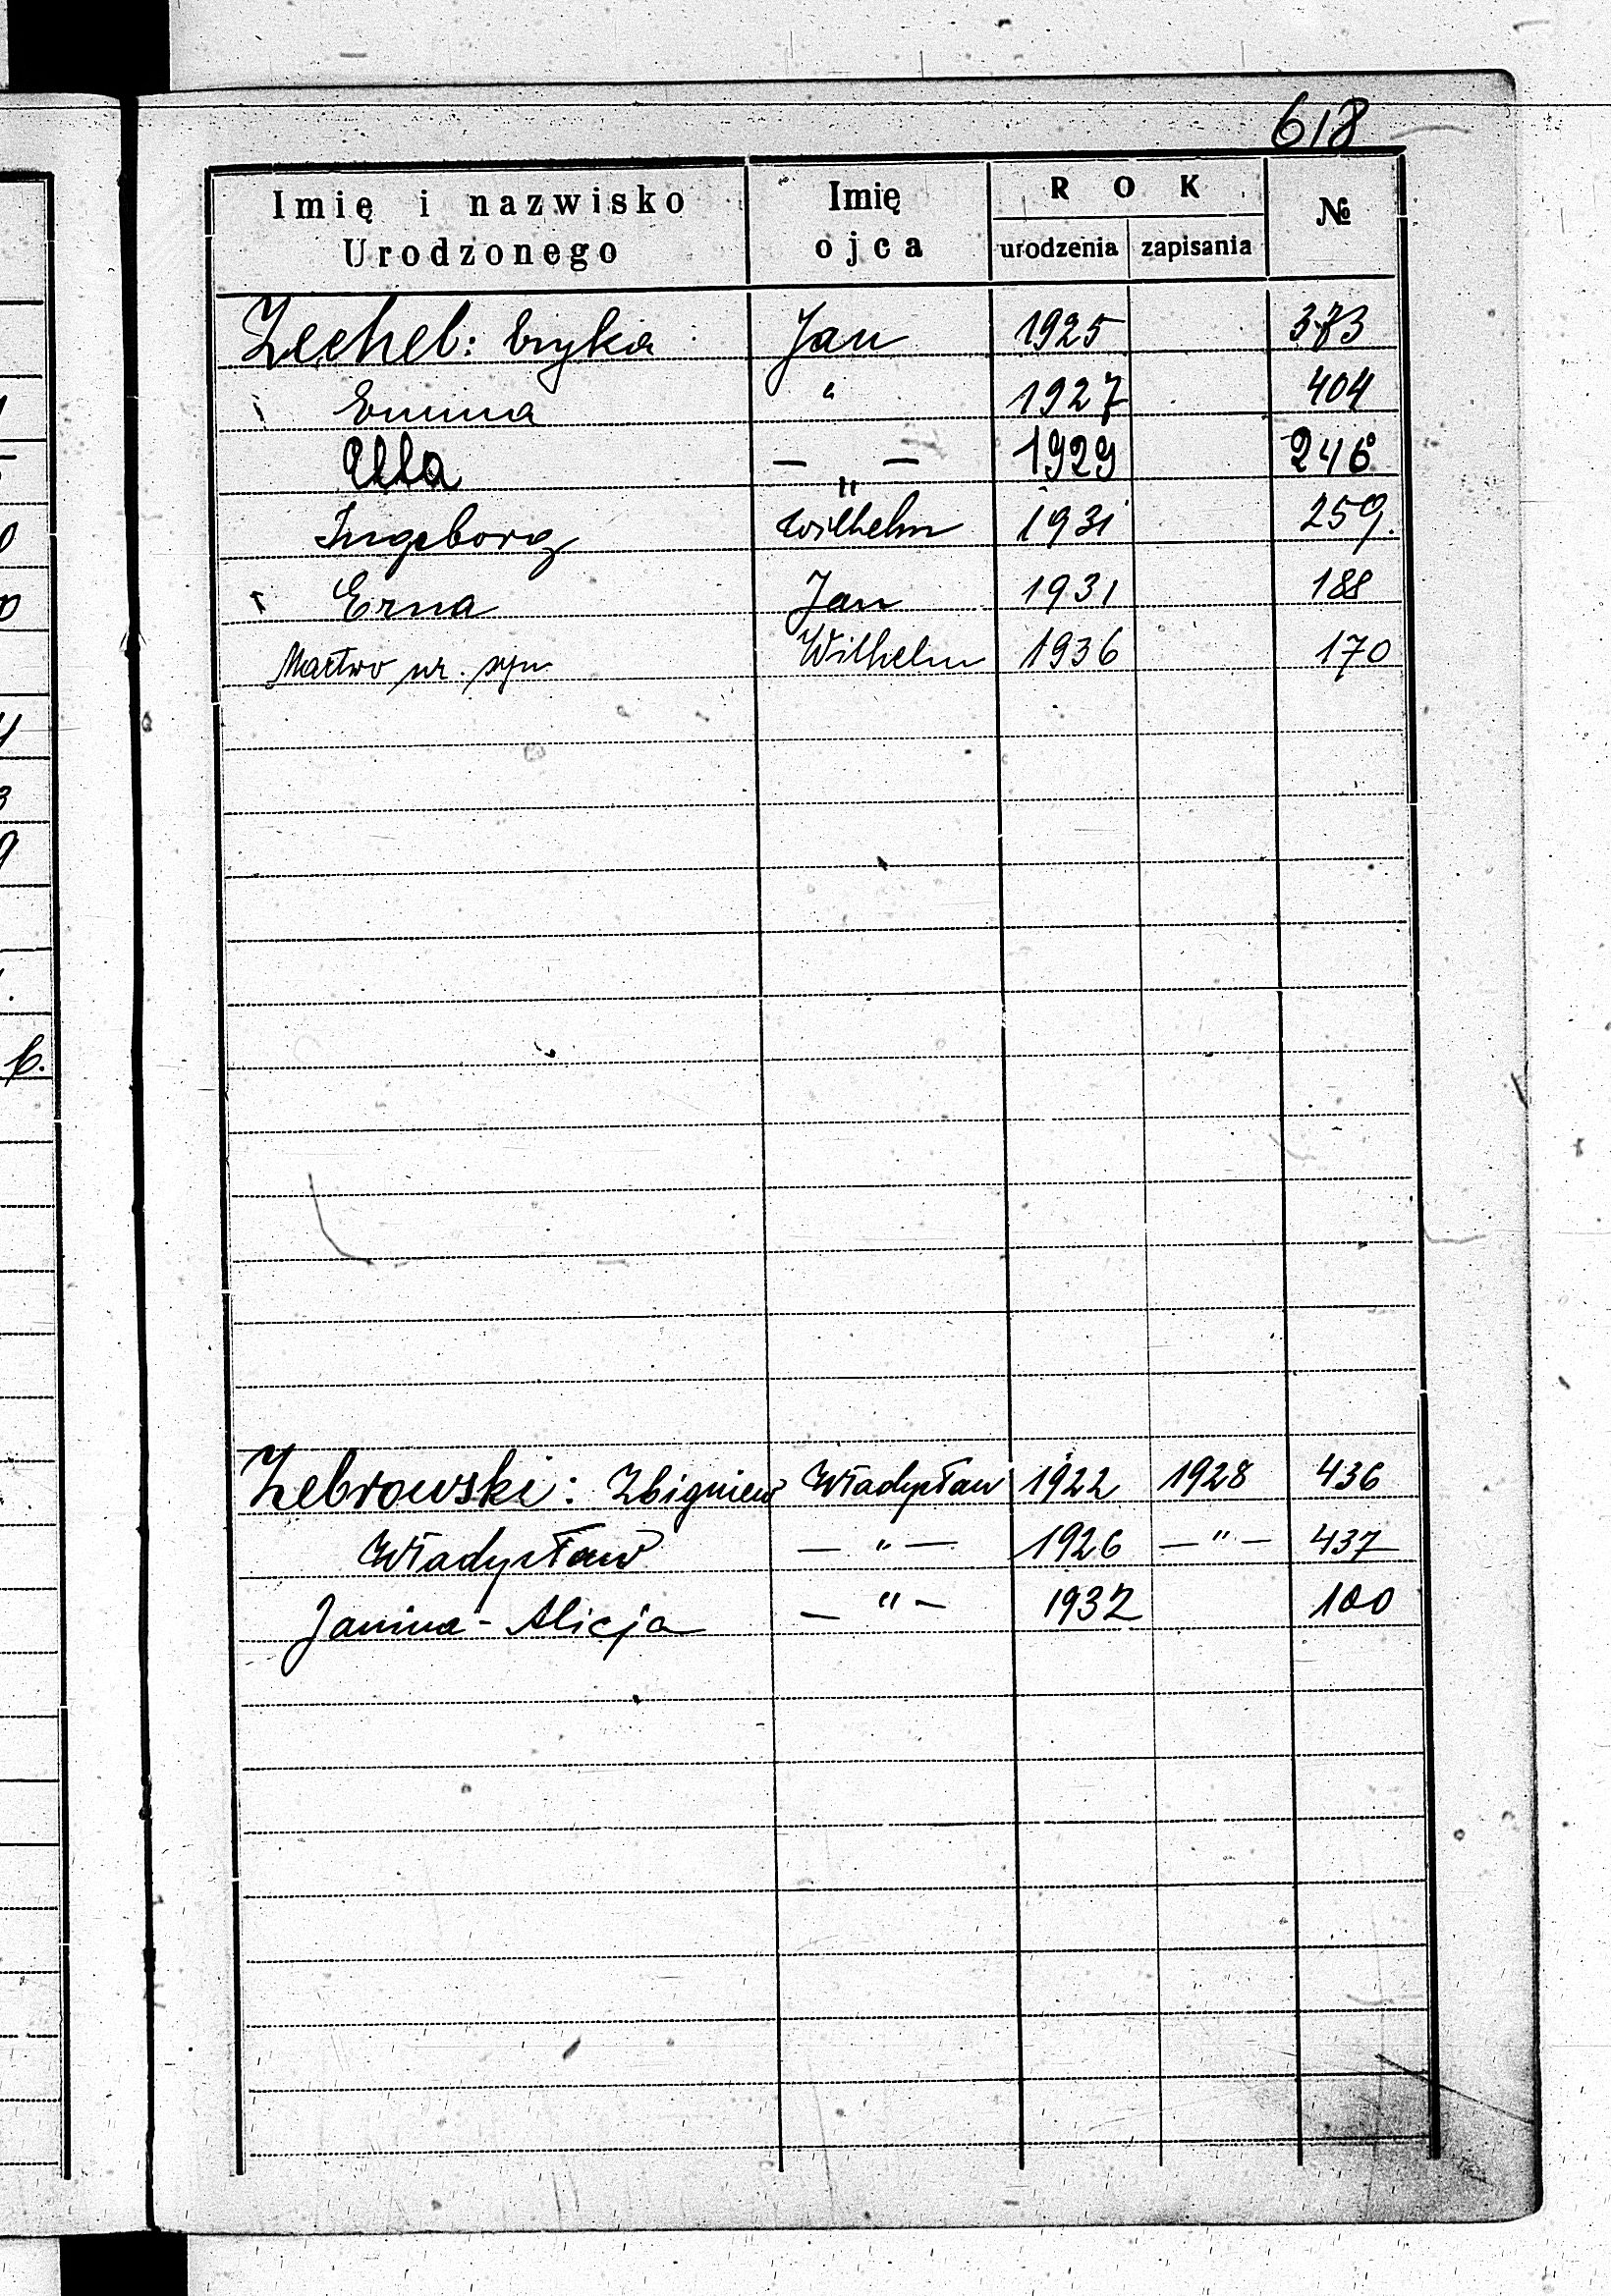 618
Imię i nazwisko Urodzonego Imię ojca ROK urodzenia zapisania №
Zechel: Eryka Jan 1925 373
Emma " 1927 404
Ella — " — 1929 246
Ingeborg Wilhelm 1931 259.
Erna Jan 1931 188
Martwo ur. syn. Wilhelm 1936 170
Zebrowski: Zbigniew Władysław 1922 1928 436
Władysław — " — 1926 — " — 437
Janina - Alicja — " — 1932 100